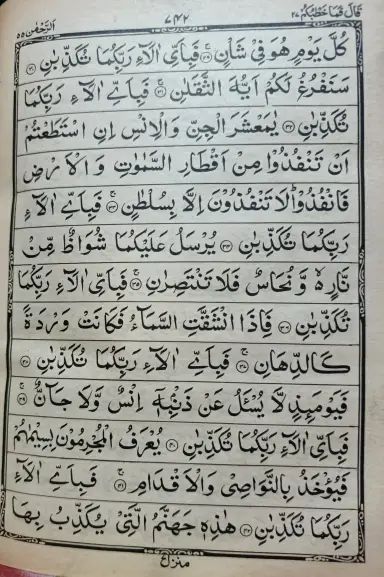 قَالَ فَمَا خَطْبُكُمْ ٢٧ ٧٤٢ اَلرَّحْمٰن ٥٥
كُلَّ يَوْمٍ هُوَ فِيْ شَاْنٍ ۚ‏﴿۲۹﴾ فَبِاَيِّ اٰلَآءِ رَبِّكُمَا تُكَذِّبٰنِ ﴿۳۰﴾
سَنَفْرُغُ لَكُمْ اَيُّهَ الثَّقَلٰنِ ۚ‏﴿۳۱﴾ فَبِاَيِّ اٰلَآءِ رَبِّكُمَا
تُكَذِّبٰنِ ﴿۳۲﴾ يٰمَعْشَرَ الْجِنِّ وَالْاِنْسِ اِنِ اسْتَطَعْتُمْ
اَنْ تَنْفُذُوْا مِنْ اَقْطَارِ السَّمٰوٰتِ وَ الْاَرْضِ
فَانْفُذُوْا ؕ لَا تَنْفُذُوْنَ اِلَّا بِسُلْطٰنٍ ۚ‏﴿۳۳﴾ فَبِاَيِّ اٰلَآءِ
رَبِّكُمَا تُكَذِّبٰنِ ﴿۳۴﴾ يُرْسَلُ عَلَيْكُمَا شُوَاظٌ مِّنْ
نَّارٍ ۙ۬ وَّ نُحَاسٌ فَلَا تَنْتَصِرٰنِ ۚ‏﴿۳۵﴾ فَبِاَيِّ اٰلَآءِ رَبِّكُمَا
تُكَذِّبٰنِ ﴿۳۶﴾ فَاِذَا انْشَقَّتِ السَّمَآءُ فَكَانَتْ وَرْدَةً
كَالدِّهَانِ ۚ‏﴿۳۷﴾ فَبِاَيِّ اٰلَآءِ رَبِّكُمَا تُكَذِّبٰنِ ﴿۳۸﴾
فَيَوْمَئِذٍ لَّا يُسْـَٔلُ عَنْ ذَنْۢبِهٖۤ اِنْسٌ وَّلَا جَآنٌّ ۚ‏﴿۳۹﴾
فَبِاَيِّ اٰلَآءِ رَبِّكُمَا تُكَذِّبٰنِ ﴿۴۰﴾ يُعْرَفُ الْمُجْرِمُوْنَ بِسِيْمٰهُمْ
فَيُؤْخَذُ بِالنَّوَاصِيْ وَالْاَقْدَامِ ۚ‏﴿۴۱﴾ فَبِاَيِّ اٰلَآءِ
رَبِّكُمَا تُكَذِّبٰنِ ﴿۴۲﴾ هٰذِهٖ جَهَنَّمُ الَّتِيْ يُكَذِّبُ بِهَا
منزل